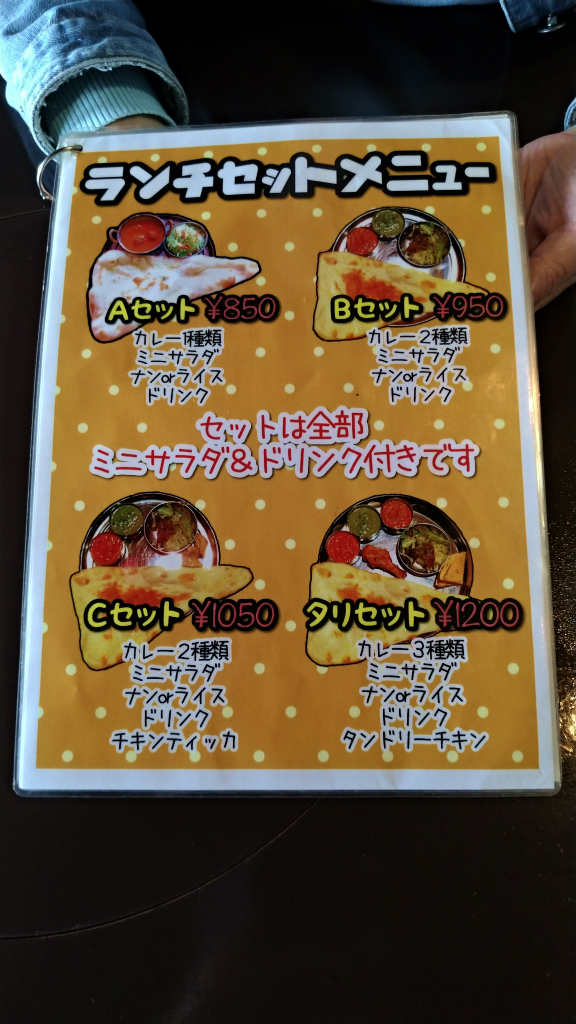 ランチセットメニュー
Aセット ¥850
カレー1種類
ミニサラダ
ナンorライス
ドリンク
Bセット ¥950
カレー2種類
ミニサラダ
ナンorライス
ドリンク
セットは全部
ミニサラダ&ドリンク付きです
Cセット ¥1050
カレー2種類
ミニサラダ
ナンorライス
ドリンク
チキンティッカ
タリセット ¥1200
カレー3種類
ミニサラダ
ナンorライス
ドリンク
タンドリーチキン